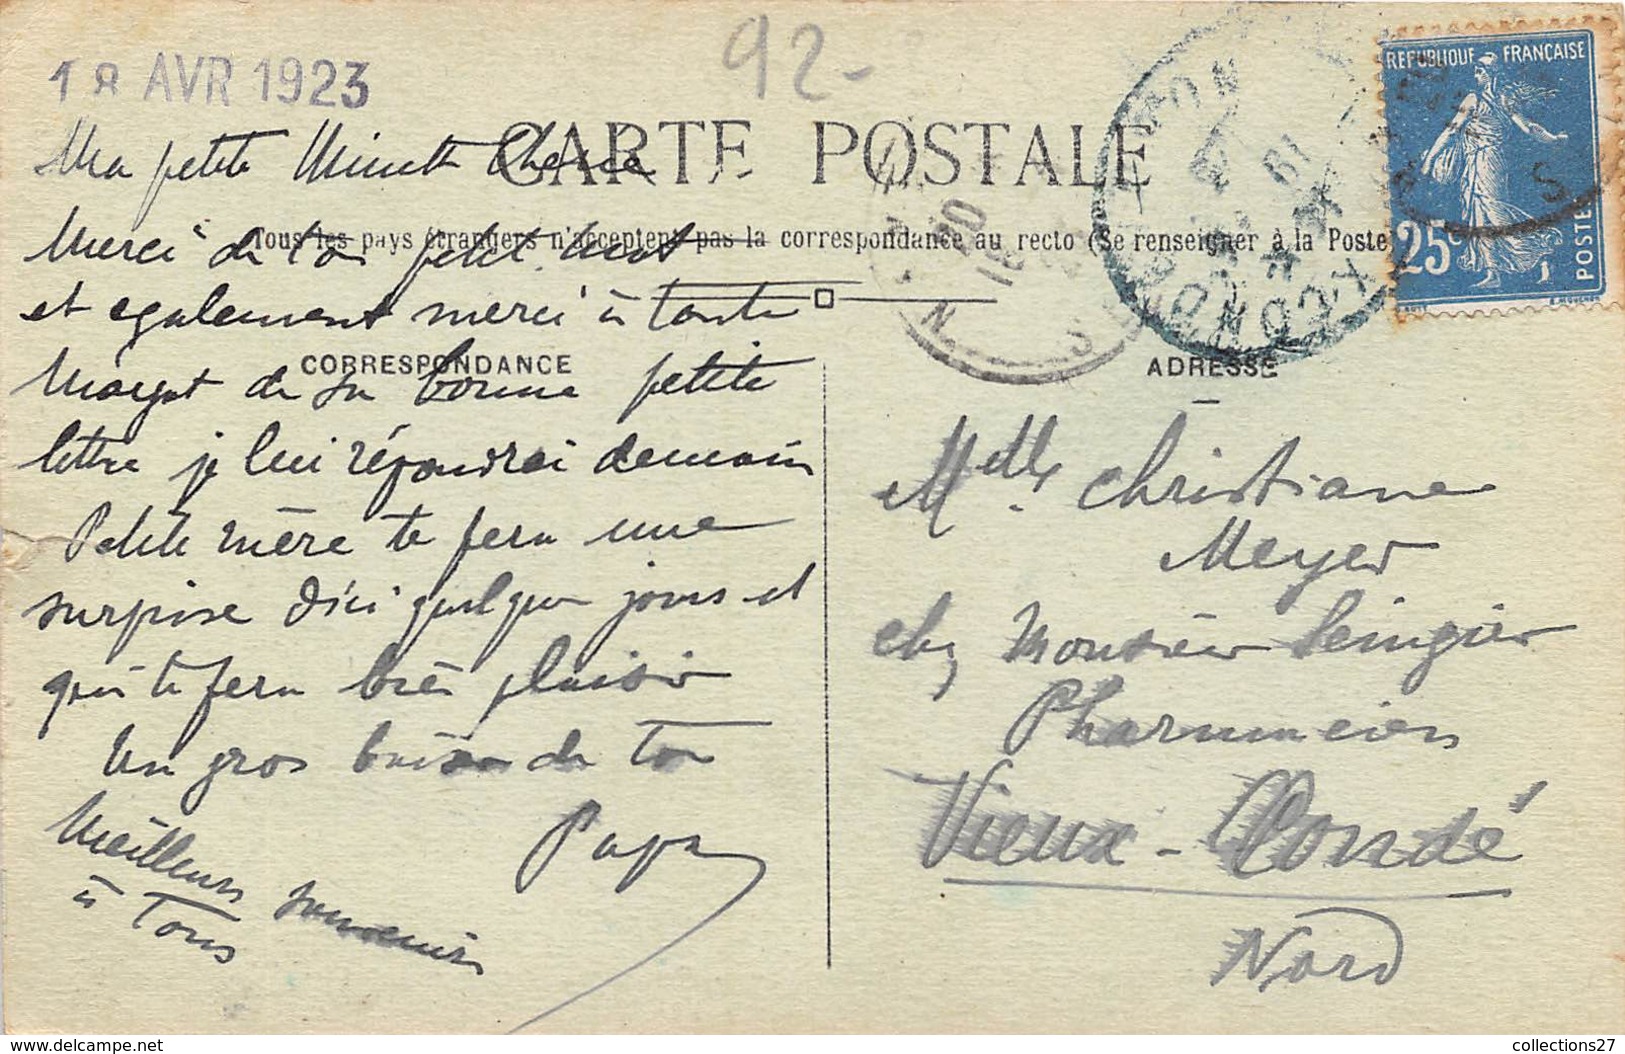 18 AVR 1923
92-
CARTE POSTALE
Tous les pays étrangers n'acceptent pas la correspondance au recto (Se renseigner à la Poste
REPUBLIQUE FRANÇAISE
25c
POSTES
CORRESPONDANCE
ADRESSE
Ma petite Minette Cherie
Merci de ton petit mot
et egalement merci à tante
Margot de sa bonne petite
lettre je lui répondrai demain
Petite mère te fera une
surprise d'ici quelque jours et
qui te fera bien plaisir
Un gros baiser de ton
Papa
Meilleurs souvenirs
à Tous
Mdlle Christiane
Meyer
chez Monsieur
Pharmacien
Vieux-Condé
Nord
www.delcampe.net
collections27